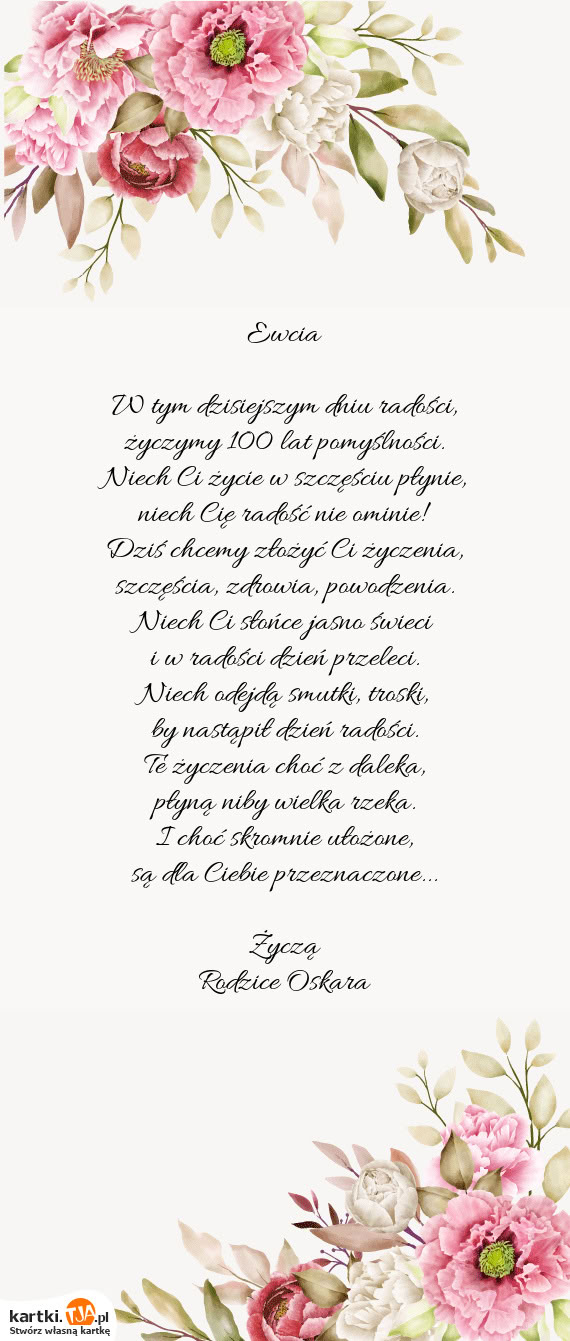 Ewcia
W tym dzisiejszym dniu radości,
życzymy 100 lat pomyślności.
Niech Ci życie w szczęściu płynie,
niech Cię radość nie ominie!
Dziś chcemy złożyć Ci życzenia,
szczęścia, zdrowia, powodzenia.
Niech Ci słońce jasno świeci
i w radości dzień przeleci.
Niech odejdą smutki, troski,
by nastąpił dzień radości.
Te życzenia choć z daleka,
płyną niby wielka rzeka.
I choć skromnie ułożone,
są dla Ciebie przeznaczone...
Życzą
Rodzice Oskara
kartki.TJA.pl
Stwórz własną kartkę